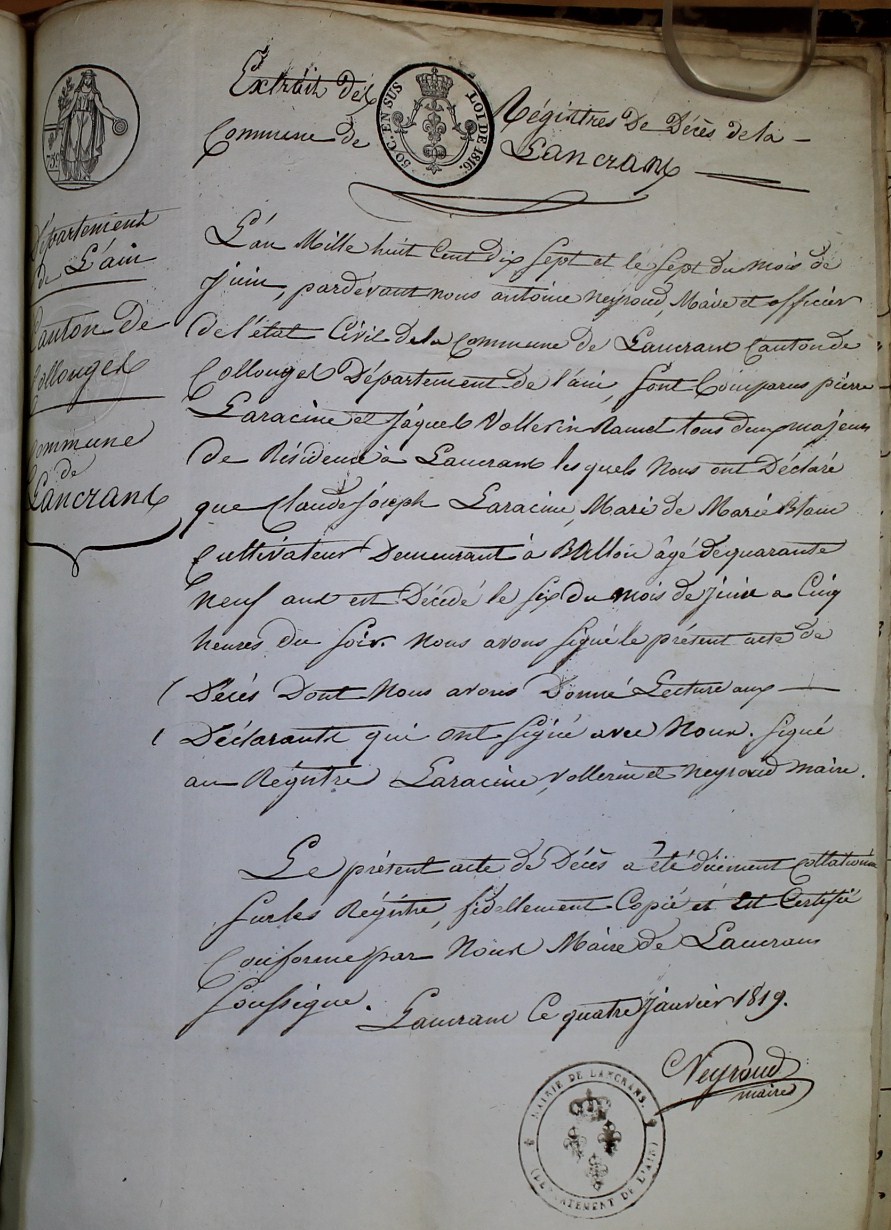 Extrait des Régistres De Décès de la
Commune de Lancrans
50 C. EN SUS
LOI DE 1816.
Département
de L'ain
Canton de
Collonges
Commune
de
Lancrans
L'an Mille huit Cent Dix Sept et le Sept du Mois de
Juin, pardevant nous antoine Neyroud, Maire et officier
De l'état Civil de la Commune de Lancrans Canton de
Collonges Département de l'ain, sont Comparus pierre
Laracine et Jâques Vollerin Ramel tous deux majeurs
De Résidence à Lancrans les quels Nous ont Déclaré
que Claude Joseph Laracine, Mari de Marie Blanc
Cultivateur Demeurant à Ballon âgé de quarante
Neuf ans est Décédé le six du mois de Juin a Cinq
heures du Soir. Nous avons signé le présent acte de
Décès Dont Nous avons Donné Lecture aux
Déclarants qui ont signé avec Nous. signé
au Régistre Laracine, Vollerin et Neyroud maire.
Le présent acte de Décès a été dûement Collationé
sur les Régistre, fidellement Copié et Certifié
Conforme par Nous Maire de Lancrans
soussigné.
Lancrans Ce quatre Janvier 1819.
Neyroud
maire
MAIRIE DE LANCRANS.
(DÉPARTEMENT DE L'AIN)